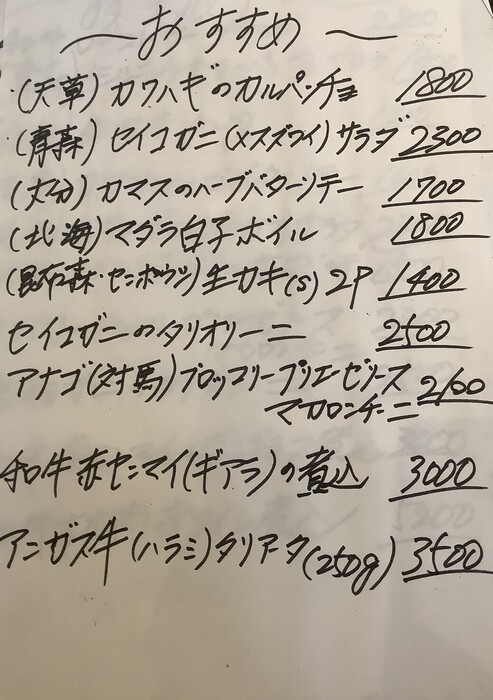 〜おすすめ〜
(天草)カワハギのカルパッチョ 1800
(青森)セイコガニ(メスズワイ)サラダ 2300
(大分)カマスのハーブバターソテー 1700
(北海)マダラ白子ボイル 1800
(昆布森・センポウシ)生カキ(S)2P 1400
セイコガニのタリオリーニ 2500
アナゴ(対馬)ブロッコリープリエーゼソース 2100
マカロンチーニ
和牛赤センマイ(ギアラ)の煮込 3000
アンガス牛(ハラミ)タリアータ(250g) 3500